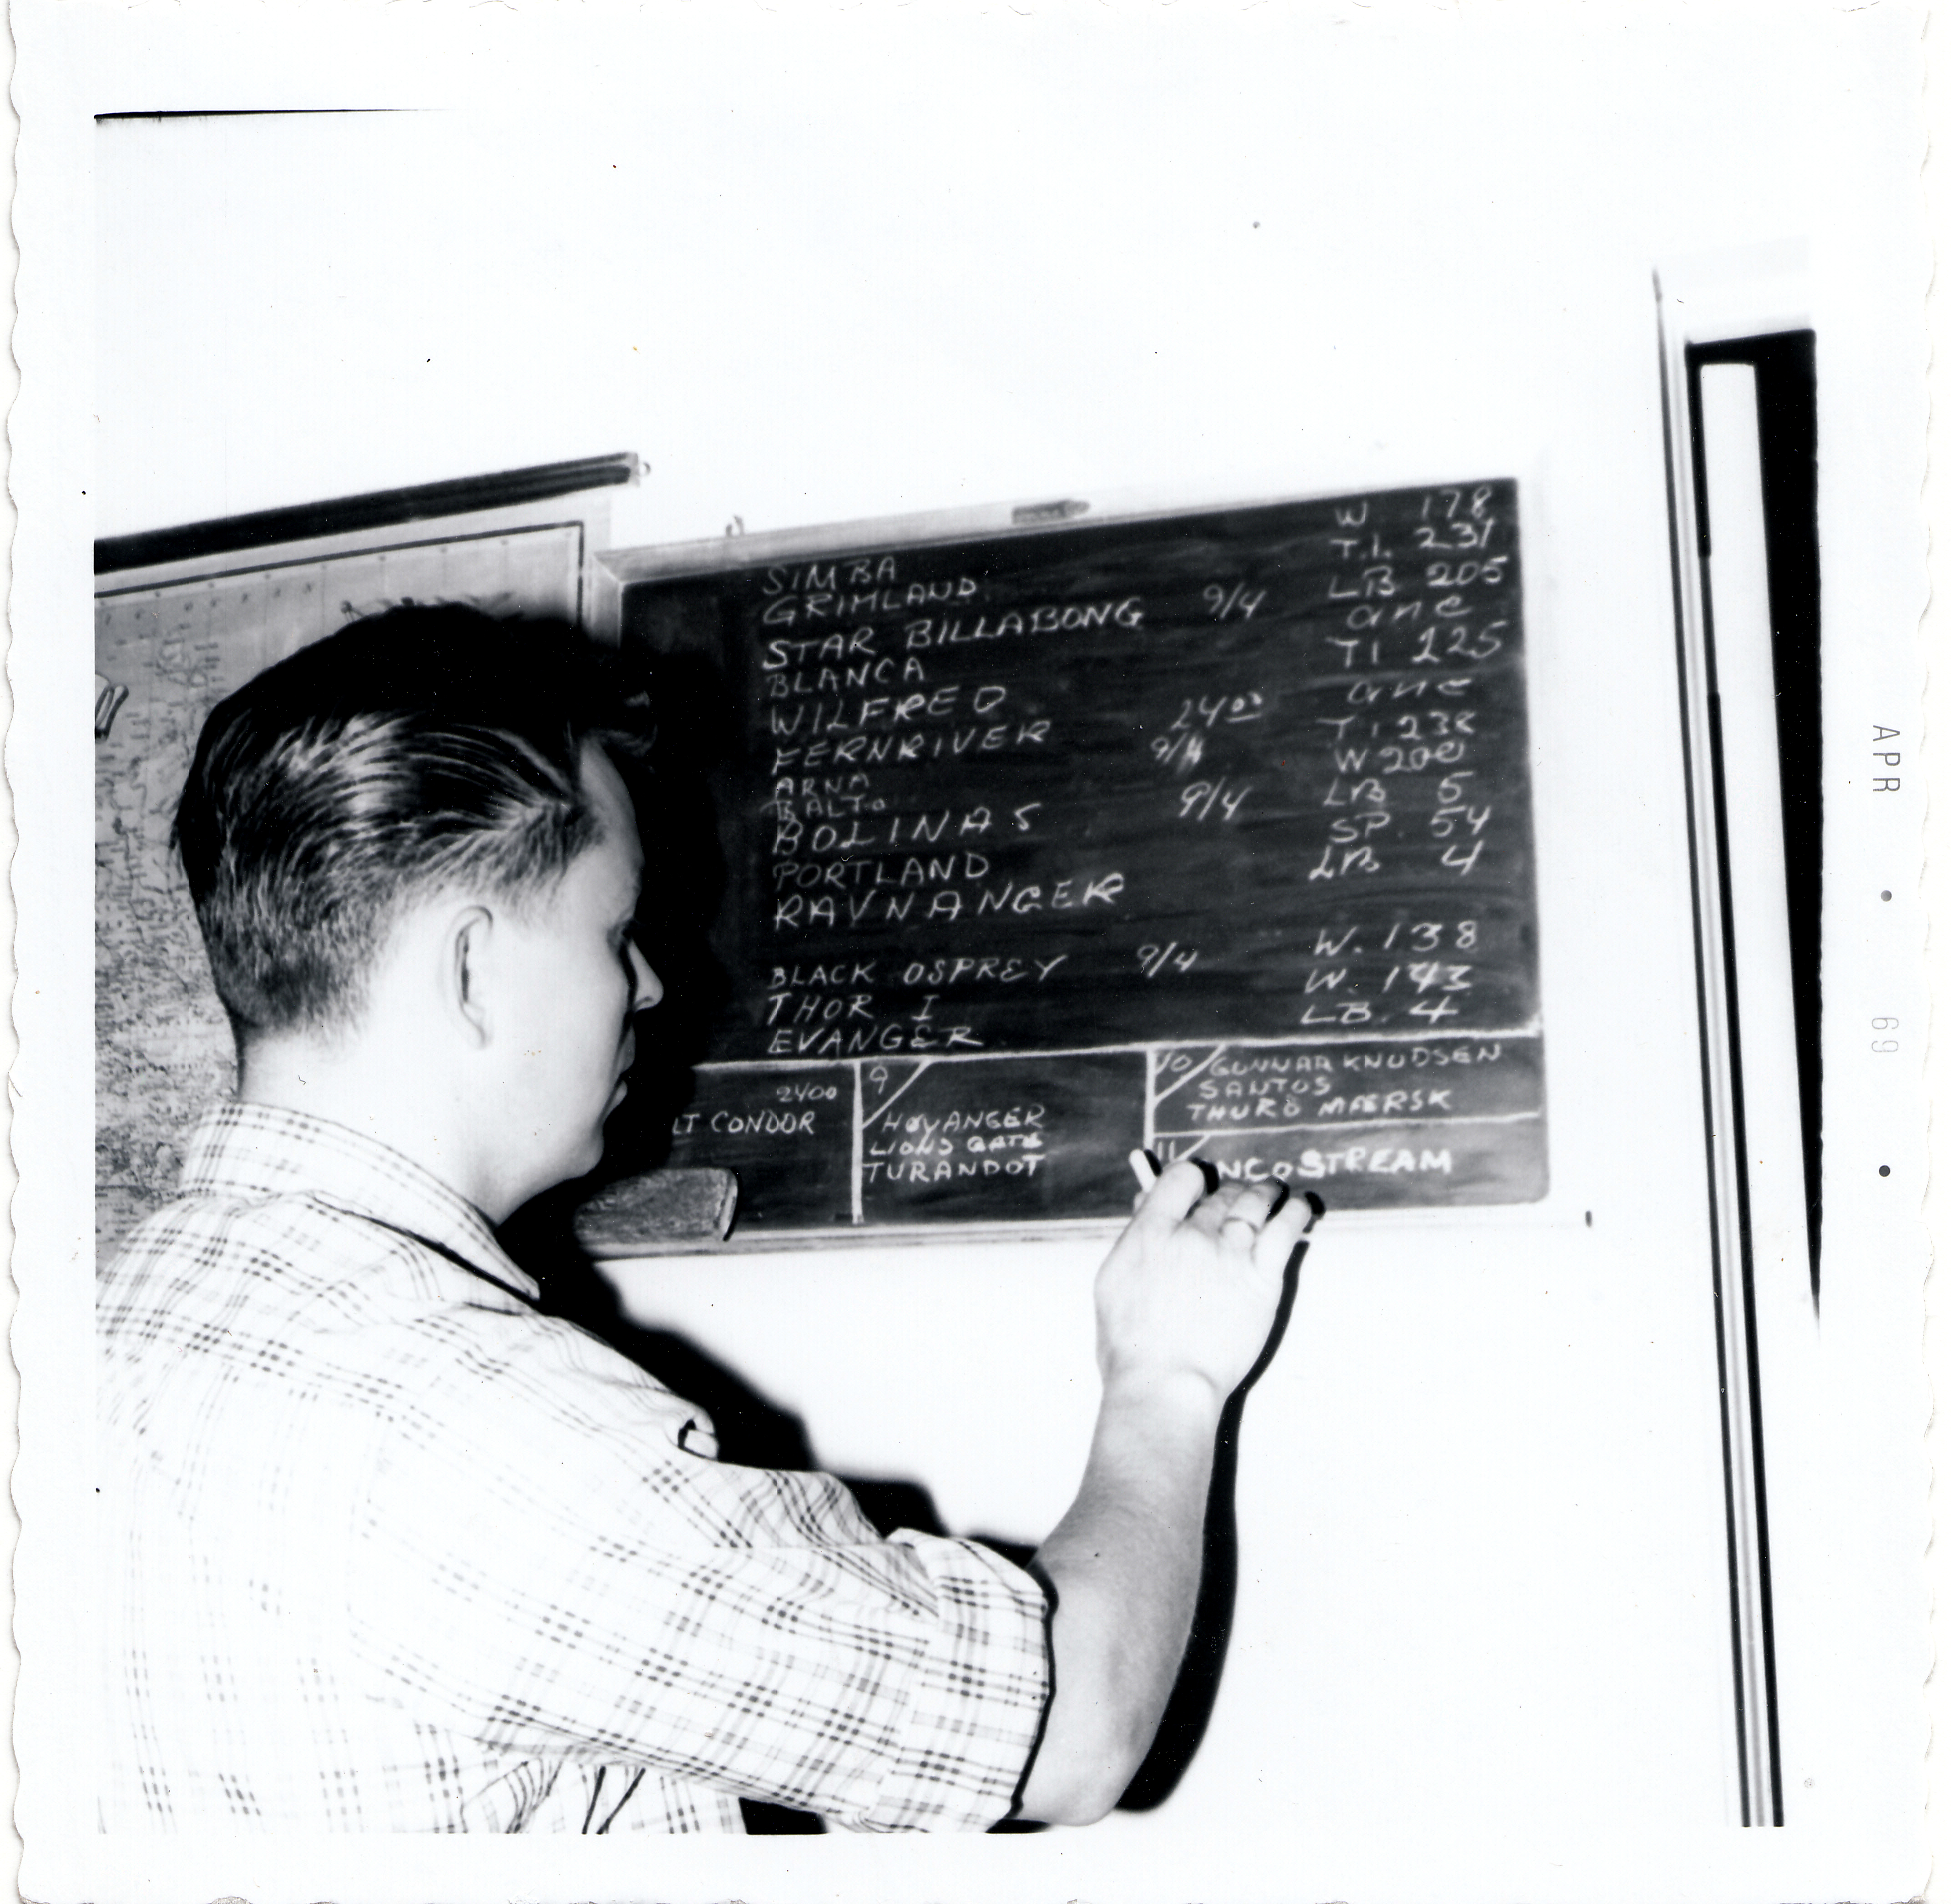 SIMBA W 178
GRIMLAND T.I. 231
STAR BILLABONG 9/4 LB 205
BLANCA ane
WILFRED TI 225
FERNRIVER 24⁰⁰ ane
ARNA 9/4 TI 238
BALTO W 200
BOLINAS 9/4 LB 5
PORTLAND SP. 54
RAVNANGER LB 4
BLACK OSPREY 9/4 W. 138
THOR I W. 143
EVANGER LB. 4
2400
LT CONDOR
9
HOYANGER
LIONS GATE
TURANDOT
10 GUNNAR KNUDSEN
SANTOS
THURØ MÆRSK
11 NCOSTREAM
APR • 69 •